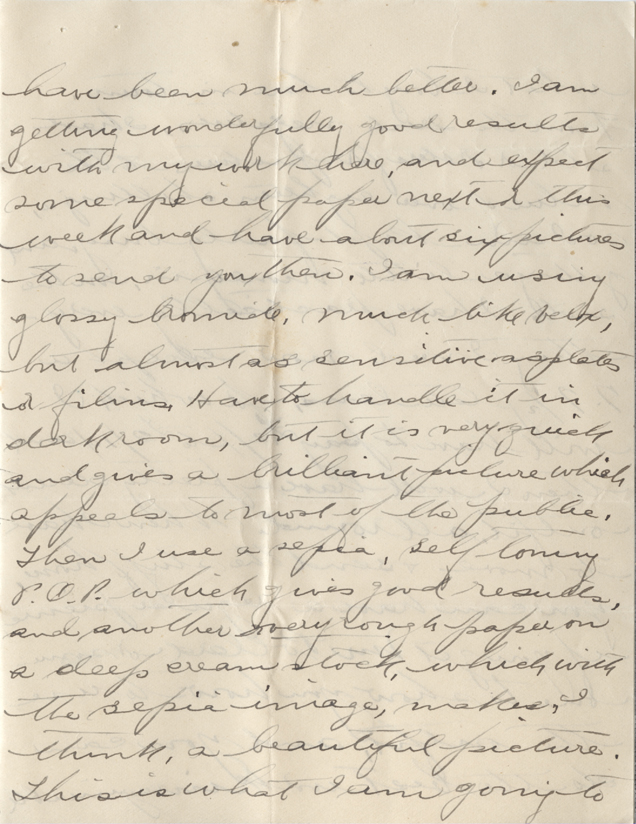 have been much better. I am
getting wonderfully good results
with my work here, and expect
some special paper next or this
week and have about six pictures
to send you then. I am using
glossy bromide, much like velox,
but almost as sensitive as plates
or films. Have to handle it in
dark room, but it is very quick
and gives a brilliant picture which
appeals to most of the public.
Then I use a sepia, self toning
P.O.P. which gives good results,
and another very rough paper on
a deep cream stock, which with
the sepia image, makes, I
think, a beautiful picture.
This is what I am going to